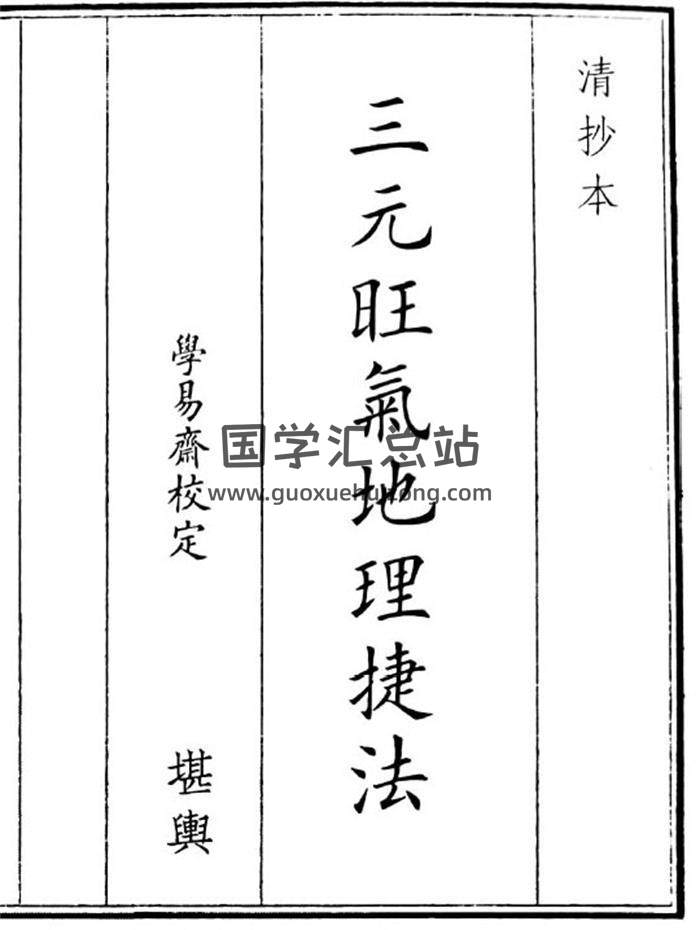 清抄本
三元旺氣地理捷法
學易齋校定
堪輿
国学汇总站
www.guoxuehuizong.com